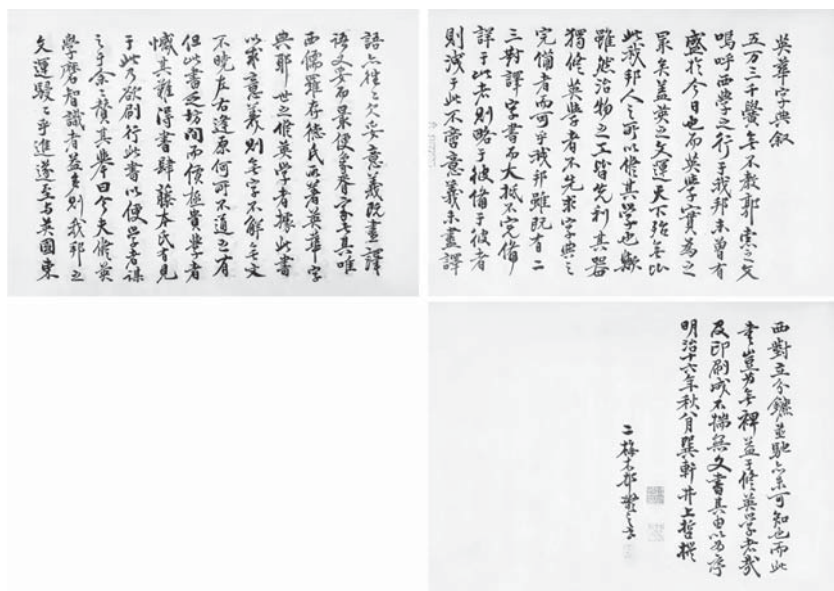 英華字典叙
五万三千黌無不教郭索之文
嗚呼西學之行于我邦未曾有
盛於今日也而英學實為之
最矣蓋英之文運天下殆無比
此我邦人之所以修其學也歟
雖然治物之工皆先利其器
獨修英學者不先求字典之
完備者而可乎我邦雖既有二
三對譯字書而大抵不完備
詳于此者則略于彼備于彼者
則淺于此不啻意義未盡譯
語亦往々欠妥意義既盡譯
語又妥而最便象胥家者其唯
西儒羅存德氏所著英華字
典耶世之修英學者據此書
以求意義則無字不解無文
不曉左右逢原何所不通之有
但此書乏坊間而價極貴學者
憾其難得書肆藤本氏有見
于此乃欲刷行此書以便學者謀
之于余々贊其舉曰今夫修英
學磨智識者益多則我邦之
文運駸々乎進遂至與英國東
西對立分鑣並馳亦未可知也而此
書豈為無裨益于修英學者哉
及印刷成不揣蕪文書其由以為序
明治十六年秋八月巽軒井上哲撰
二梅木邨